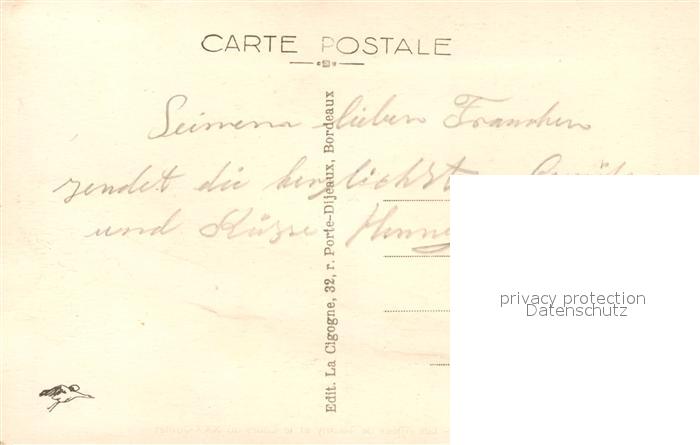 CARTE POSTALE
Seinem lieben Frauchen
sendet die herzlichsten Grüße
und Küsse
Edit. La Cigogne, 32, r. Porte-Dijeaux, Bordeaux
privacy protection
Datenschutz